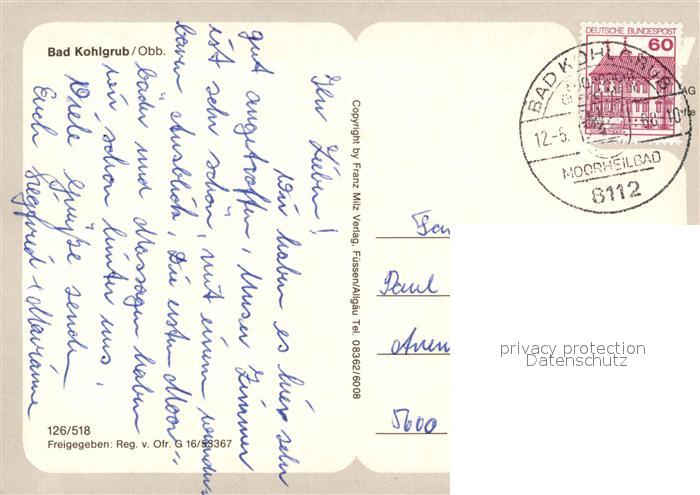 Bad Kohlgrub/Obb.
Ihr Lieben!
Wir haben es hier sehr
gut angetroffen, Unser Zimmer
ist sehr schön, mit einem wunder=
baren Ausblick, Die ersten Moor=
bäder und Massagen haben
wir schon hinter uns,
Viele Grüße senden
Euch Siegfried + Marianne
126/518
Freigegeben: Reg. v. Ofr. G 16/53367
Copyright by Franz Milz Verlag, Füssen/Allgäu Tel. 08362/6008
DEUTSCHE BUNDESPOST
60
BAD KOHLGRUB
12.-5.
-10
MOORHEILBAD
8112
Paul
5600
privacy protection
Datenschutz